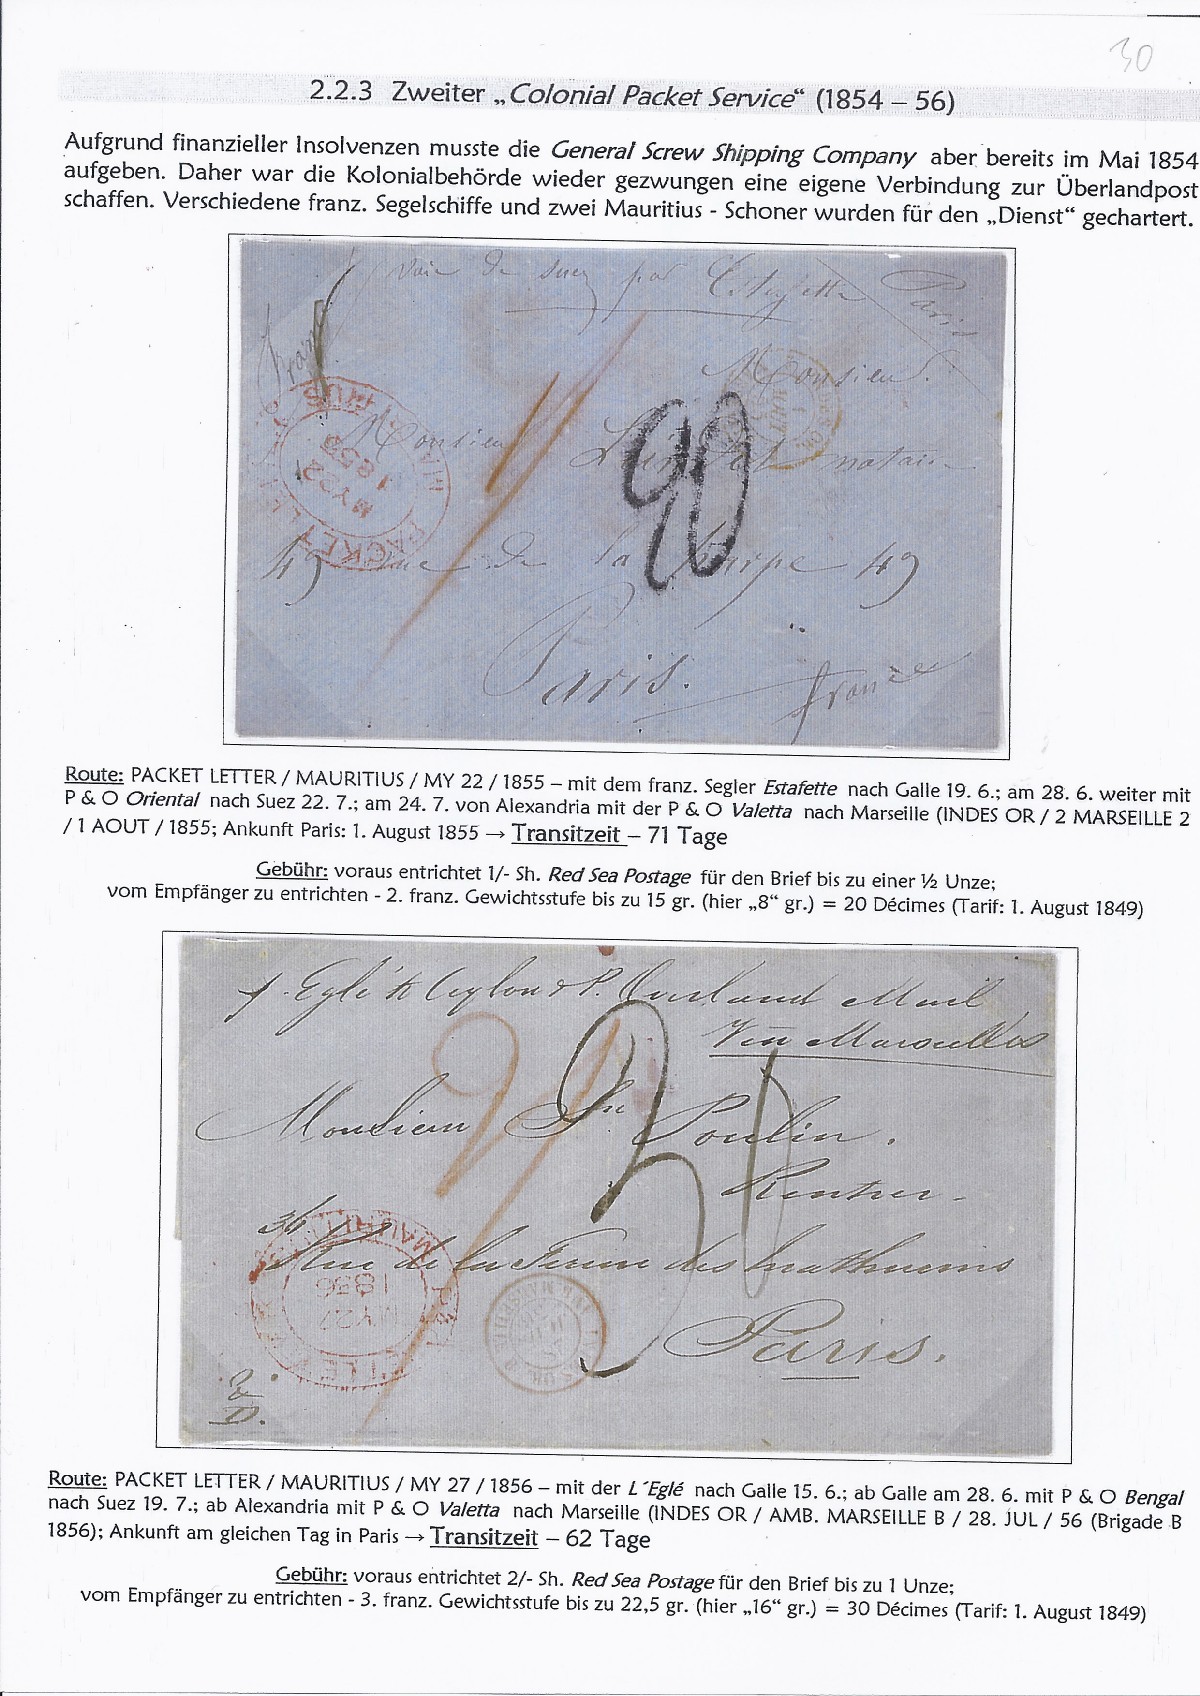 30
2.2.3 Zweiter „Colonial Packet Service“ (1854 – 56)
Aufgrund finanzieller Insolvenzen musste die General Screw Shipping Company aber bereits im Mai 1854
aufgeben. Daher war die Kolonialbehörde wieder gezwungen eine eigene Verbindung zur Überlandpost
schaffen. Verschiedene franz. Segelschiffe und zwei Mauritius - Schoner wurden für den „Dienst“ gechartert.
Voie de Suez par Estafette
Paris
franc
Monsieur
Monsieur
notaire
20
PACKET LETTER
MAURITIUS
MY 22
1855
49 rue de la Harpe 49
Paris.
France
Route: PACKET LETTER / MAURITIUS / MY 22 / 1855 – mit dem franz. Segler Estafette nach Galle 19. 6.; am 28. 6. weiter mit
P & O Oriental nach Suez 22. 7.; am 24. 7. von Alexandria mit der P & O Valetta nach Marseille (INDES OR / 2 MARSEILLE 2
/ 1 AOUT / 1855; Ankunft Paris: 1. August 1855 → Transitzeit – 71 Tage
Gebühr: voraus entrichtet 1/- Sh. Red Sea Postage für den Brief bis zu einer ½ Unze;
vom Empfänger zu entrichten - 2. franz. Gewichtsstufe bis zu 15 gr. (hier „8“ gr.) = 20 Décimes (Tarif: 1. August 1849)
p. Eglé to Ceylon & P. Overland Mail
Via Marseilles
2/
30
Monsieur Jn Poulin.
Rentier.
36
Rue de la Ferme des Mathurins
Paris.
PACKET LETTER
MAURITIUS
MY 27
1856
Route: PACKET LETTER / MAURITIUS / MY 27 / 1856 – mit der L´Eglé nach Galle 15. 6.; ab Galle am 28. 6. mit P & O Bengal
nach Suez 19. 7.; ab Alexandria mit P & O Valetta nach Marseille (INDES OR / AMB. MARSEILLE B / 28. JUL / 56 (Brigade B
1856); Ankunft am gleichen Tag in Paris → Transitzeit – 62 Tage
Gebühr: voraus entrichtet 2/- Sh. Red Sea Postage für den Brief bis zu 1 Unze;
vom Empfänger zu entrichten - 3. franz. Gewichtsstufe bis zu 22,5 gr. (hier „16“ gr.) = 30 Décimes (Tarif: 1. August 1849)